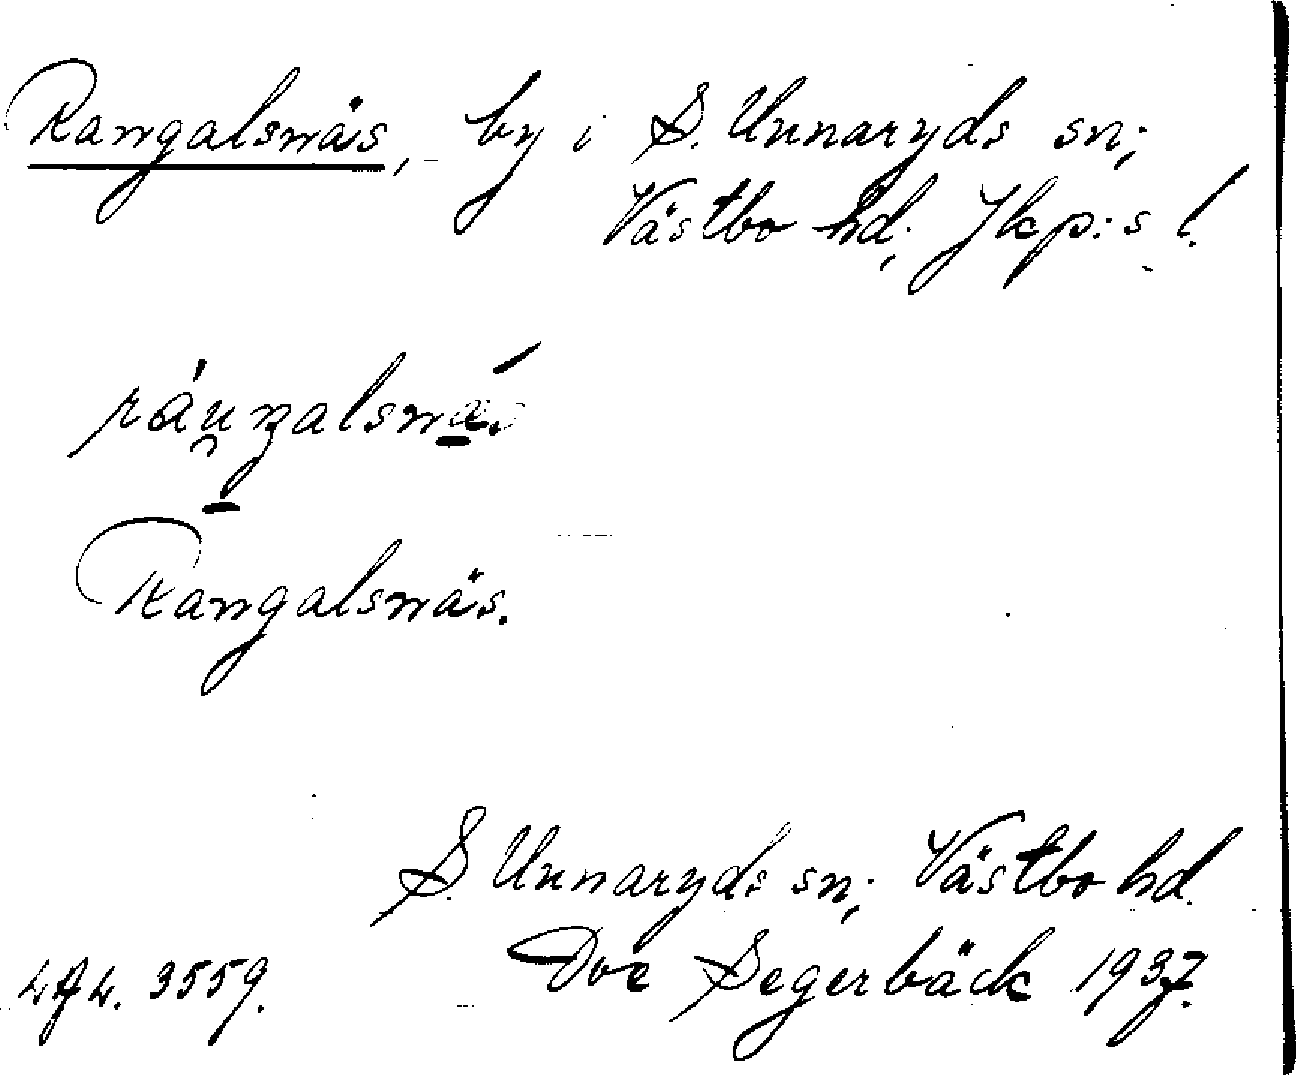 Rangalsnäs, by i S. Unnaryds sn;
Västbo hd; Jkp:s l.
Rangalsnäs.
S. Unnaryds sn; Västbo hd.
3559.
Segerbäck 1937.